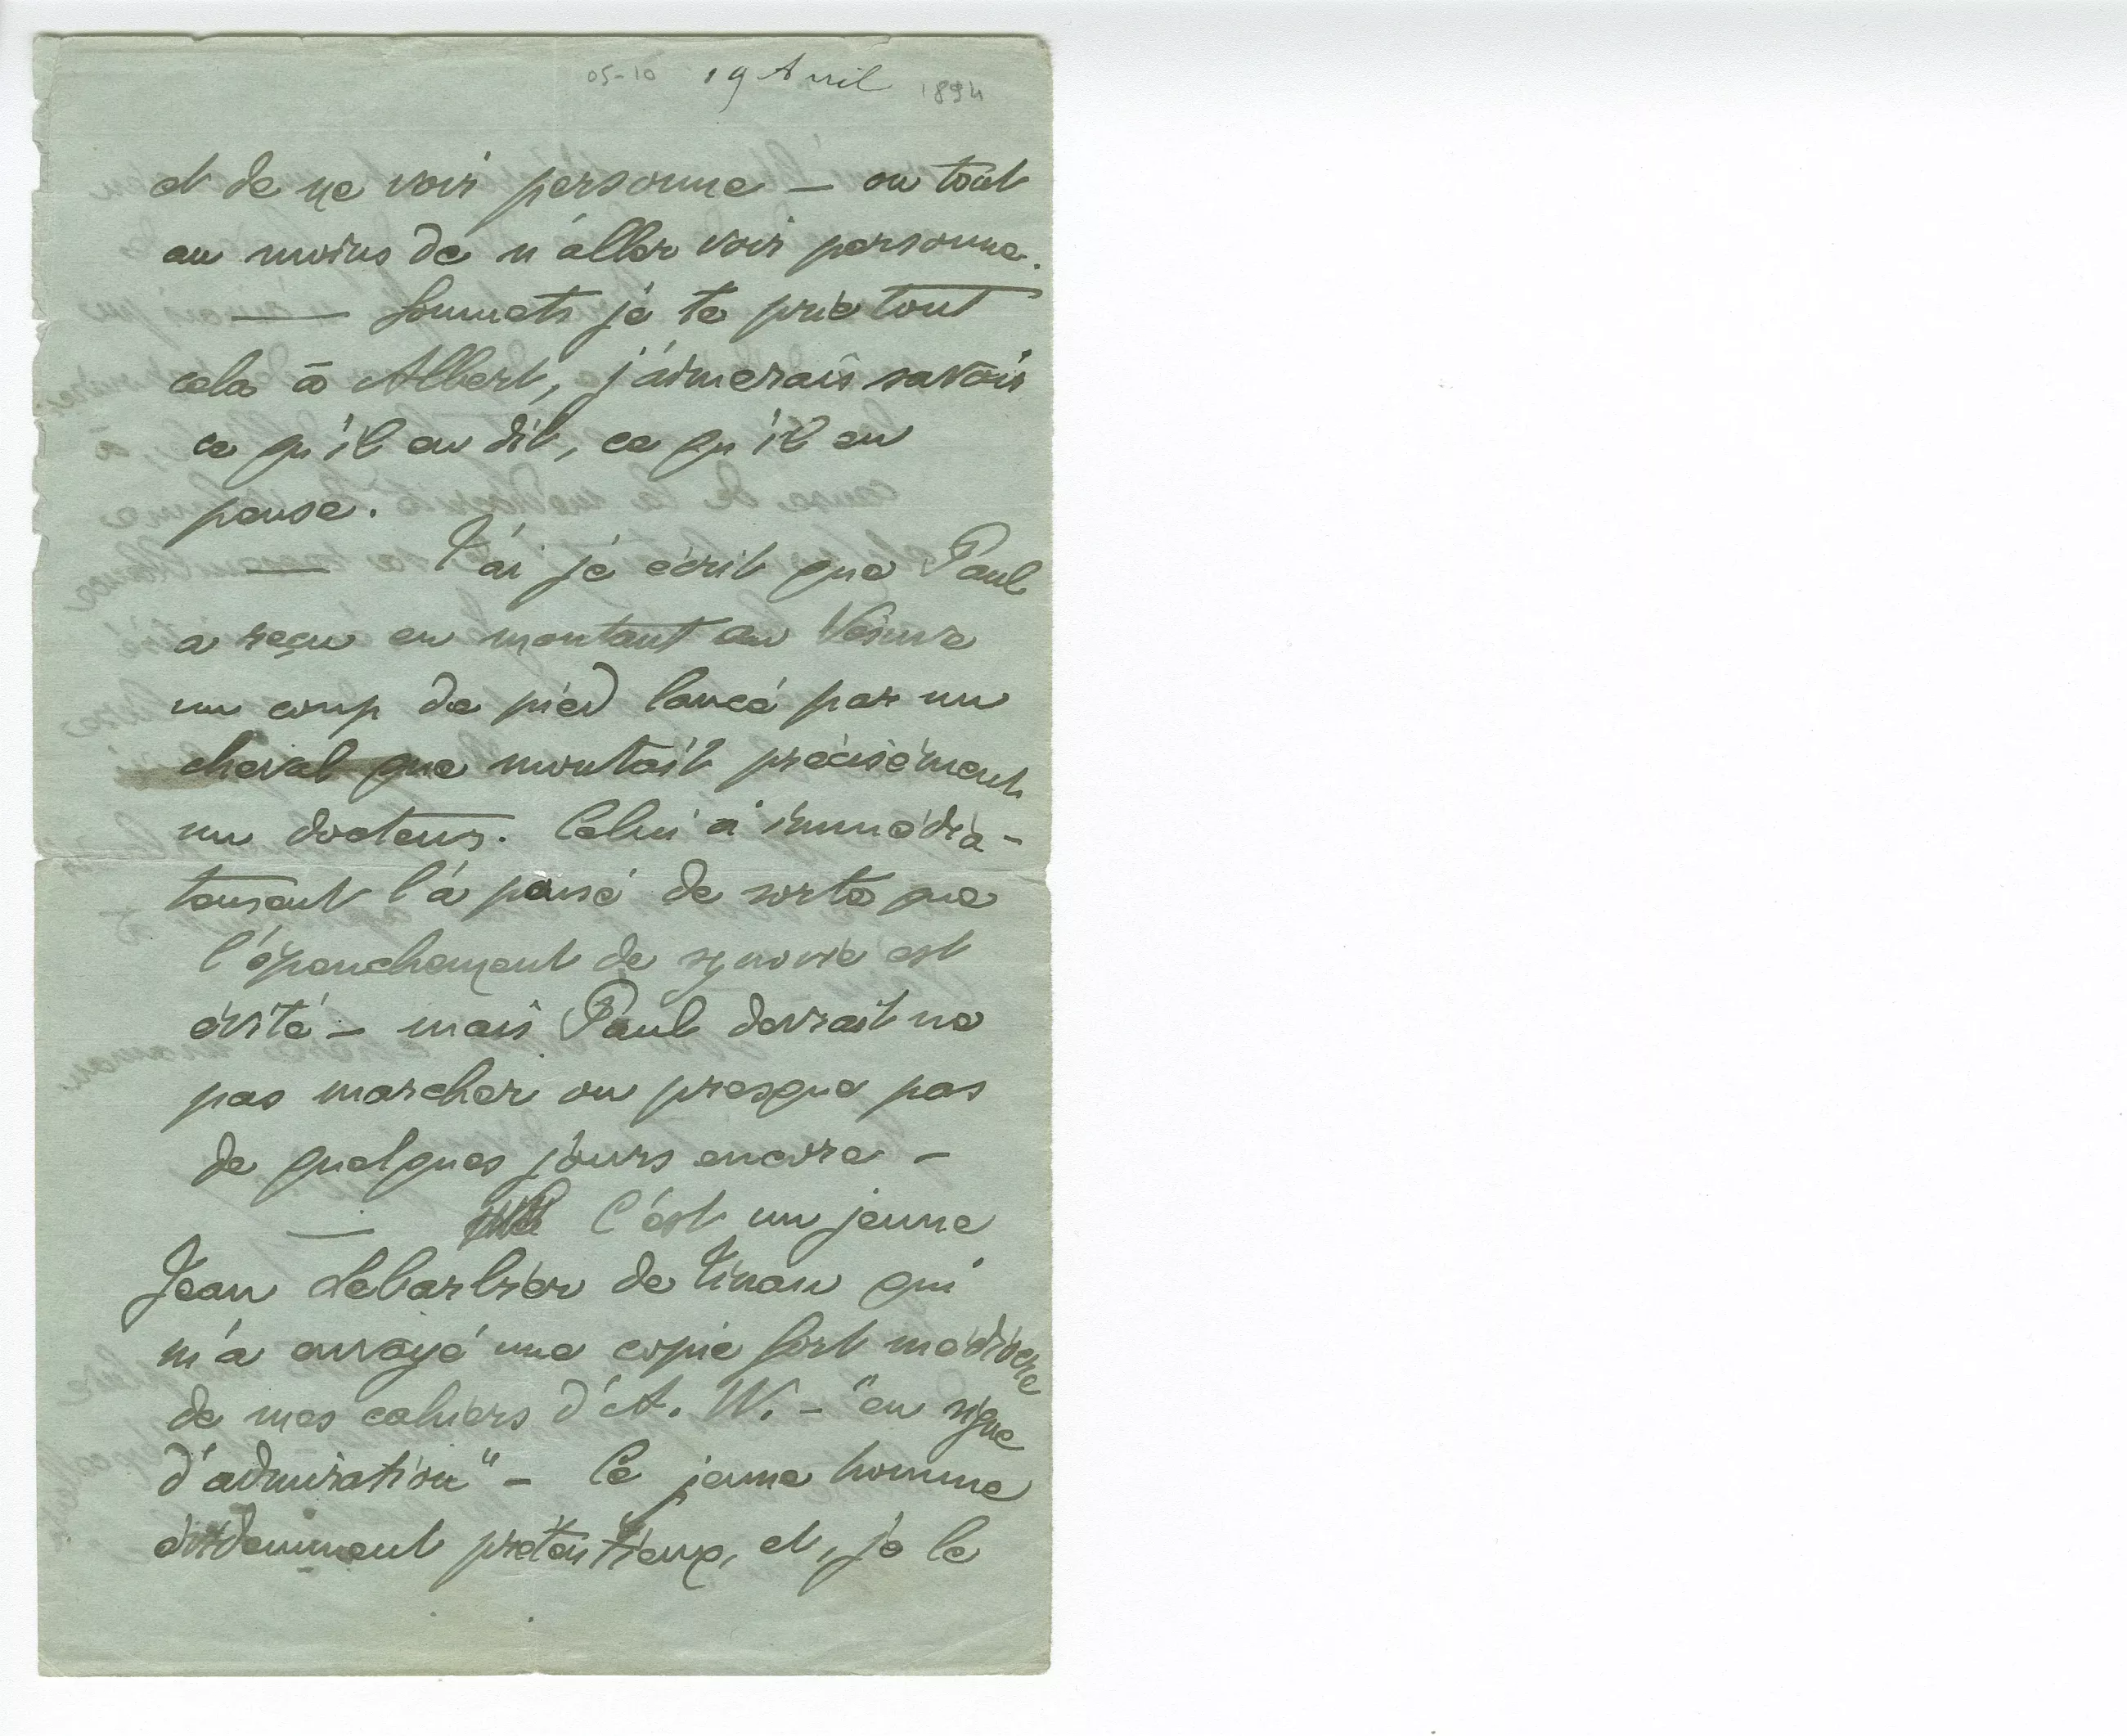 05-10 19 Avril 1894
et de ne voir personne — ou tout
au moins de n'aller voir personne.
— Soumets je te prie tout
cela à Albert, j'aimerais savoir
ce qu'il en dit, ce qu'il en
pense.
— T'ai je écrit que Paul
a reçu en montant au Vésuve
un coup de pied lancé par un
cheval que montait précisément
un docteur. Celui ci immédia-
tement l'a pansé de sorte que
l'épanchement de synovie est
évité — mais Paul devrait ne
pas marcher ou presque pas
de quelques jours encore —
— C'est un jeune
Jean Lebarbier de Tinan qui
m'a envoyé une copie fort médiocre
de mes cahiers d'A. W. — "en signe
d'admiration" — Ce jeune homme
évidemment prétentieux, et, je le